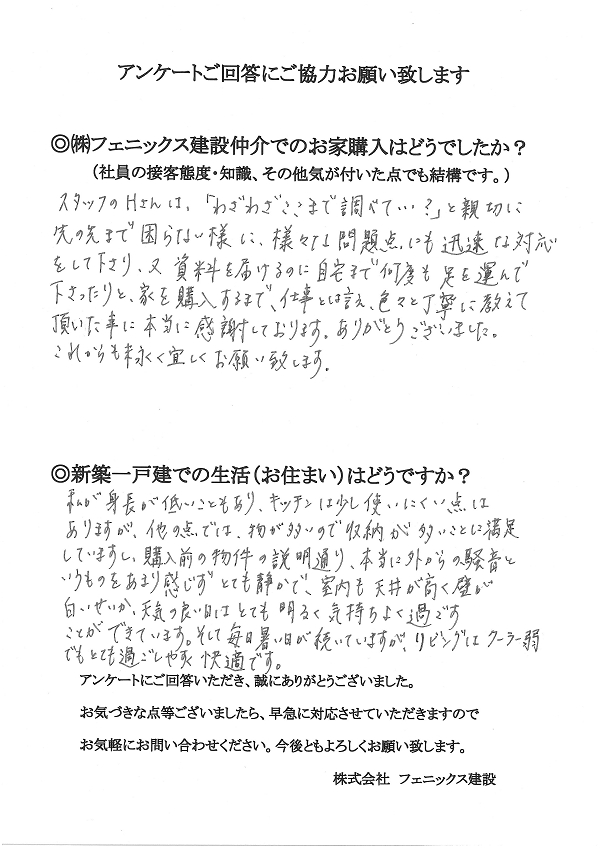 アンケートご回答にご協力お願い致します
◎㈱フェニックス建設仲介でのお家購入はどうでしたか？
（社員の接客態度・知識、その他気が付いた点でも結構です。）
スタッフのHさんは、「わざわざここまで調べてい？」と親切に
先の先まで困らない様に、様々な問題点にも迅速な対応
をして下さり、又資料を届けるのに自宅まで何度も足を運んで
下さったりと、家を購入するまで、仕事とは言え、色々と丁寧に教えて
頂いた事に本当に感謝しております。ありがとうございました。
これからも末永く宜しくお願い致します。
◎新築一戸建での生活（お住まい）はどうですか？
私が身長が低いこともあり、キッチンは少し使いにくい点は
ありますが、他の点では、物が多いので収納が多いことに満足
していますし、購入前の物件の説明通り、本当に外からの騒音と
いうものをあまり感じずとても静かで、室内も天井が高く壁が
白いせいか、天気の良い日はとても明るく気持ちよく過ごす
ことができています。そして毎日暑い日が続いていますが、リビングはクーラー弱
でもとても過ごしやすく快適です。
アンケートにご回答いただき、誠にありがとうございました。
お気づきな点等ございましたら、早急に対応させていただきますので
お気軽にお問い合わせください。今後ともよろしくお願い致します。
株式会社 フェニックス建設